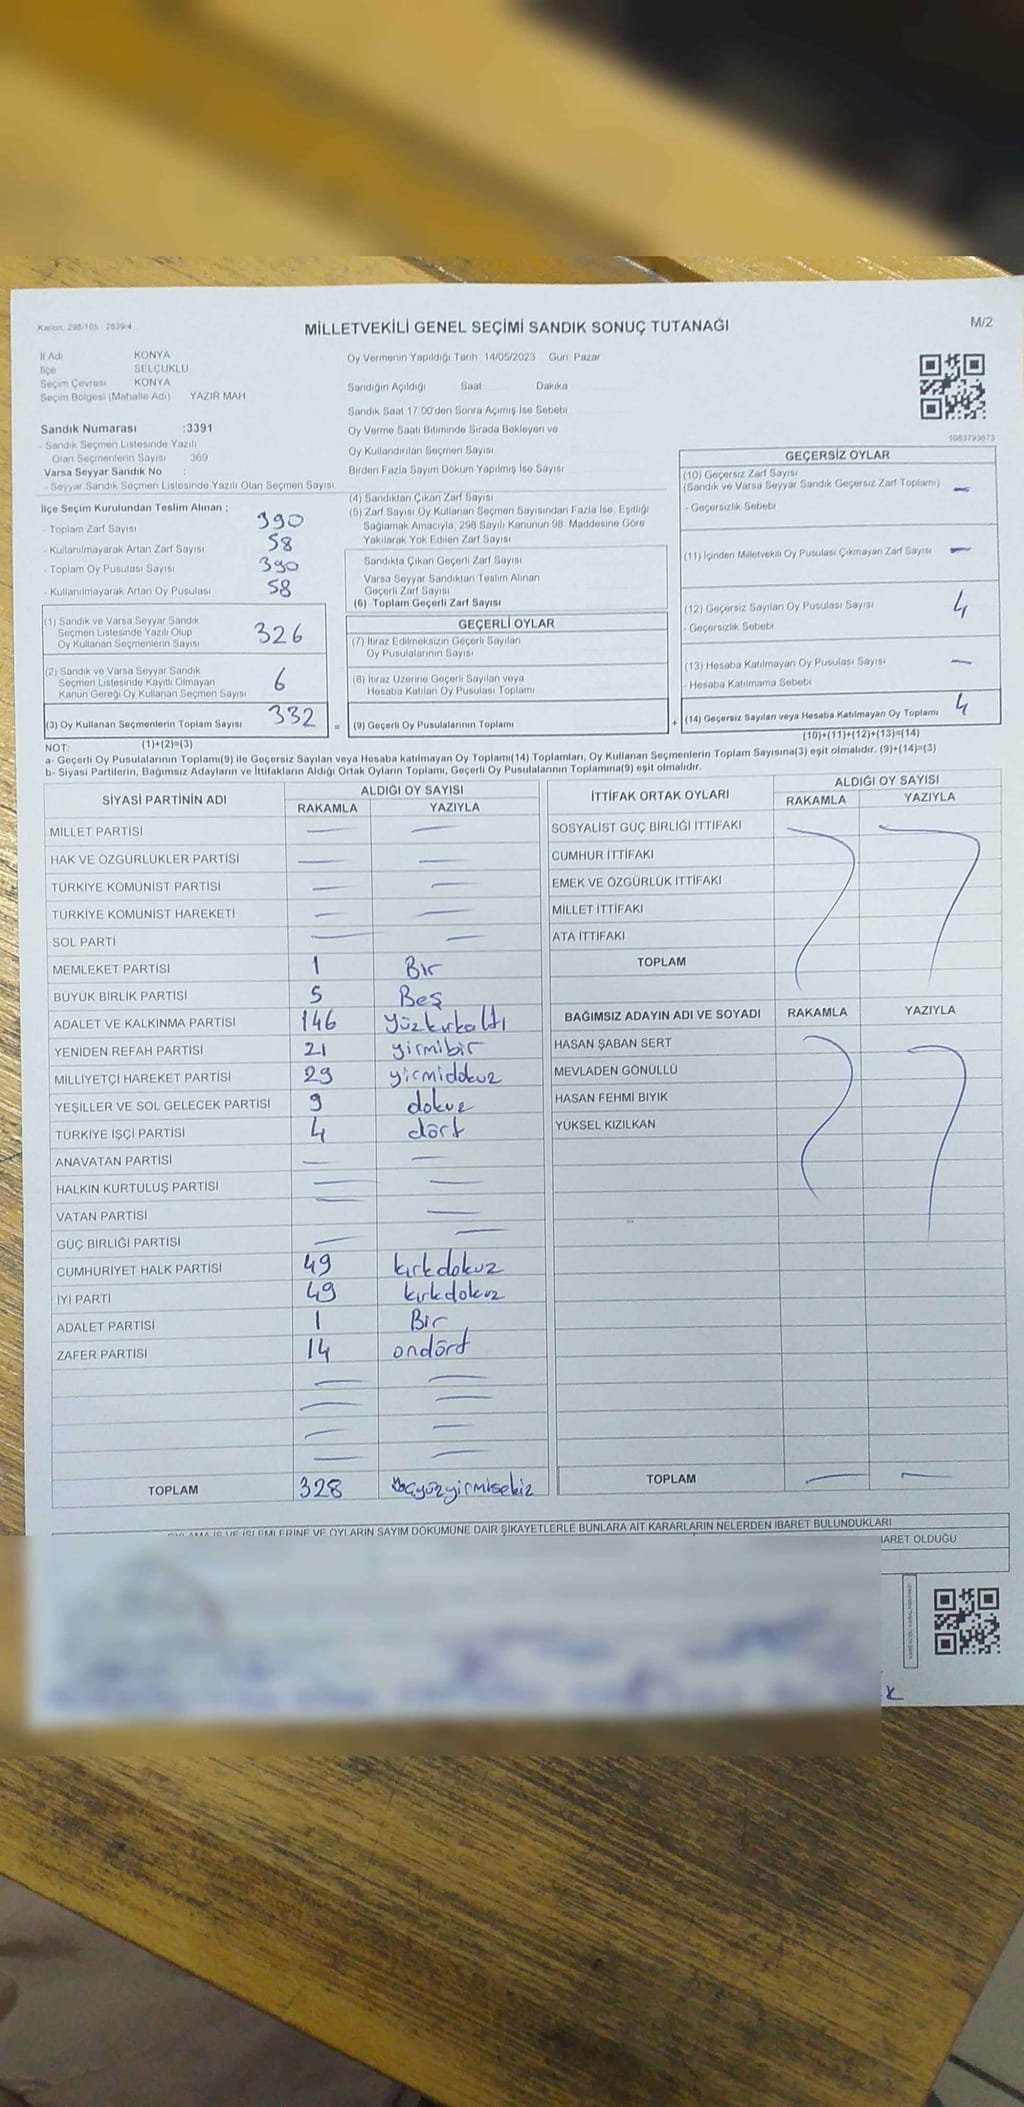 Kanun: 298/105 2839/4
MİLLETVEKİLİ GENEL SEÇİMİ SANDIK SONUÇ TUTANAĞI
M/2
İl Adı KONYA
İlçe SELÇUKLU
Seçim Çevresi KONYA
Seçim Bölgesi (Mahalle Adı) YAZIR MAH
Sandık Numarası :3391
- Sandık Seçmen Listesinde Yazılı
Olan Seçmenlerin Sayısı 369
Varsa Seyyar Sandık No :
- Seyyar Sandık Seçmen Listesinde Yazılı Olan Seçmen Sayısı
Oy Vermenin Yapıldığı Tarih 14/05/2023 Gün: Pazar
Sandığın Açıldığı Saat Dakika
Sandık Saat 17:00'den Sonra Açılmış İse Sebebi
Oy Verme Saati Bitiminde Sırada Bekleyen ve
Oy Kullandırılan Seçmen Sayısı
Birden Fazla Sayım Döküm Yapılmış İse Sayısı
1083793673
İlçe Seçim Kurulundan Teslim Alınan :
- Toplam Zarf Sayısı 390
- Kullanılmayarak Artan Zarf Sayısı 58
- Toplam Oy Pusulası Sayısı 390
- Kullanılmayarak Artan Oy Pusulası 58
(1) Sandık ve Varsa Seyyar Sandık
Seçmen Listesinde Yazılı Olup
Oy Kullanan Seçmenlerin Sayısı 326
(2) Sandık ve Varsa Seyyar Sandık
Seçmen Listesinde Kayıtlı Olmayan
Kanun Gereği Oy Kullanan Seçmen Sayısı 6
(3) Oy Kullanan Seçmenlerin Toplam Sayısı 332 =
(4) Sandıktan Çıkan Zarf Sayısı
(5) Zarf Sayısı Oy Kullanan Seçmen Sayısından Fazla İse, Eşitliği
Sağlamak Amacıyla; 298 Sayılı Kanunun 98. Maddesine Göre
Yakılarak Yok Edilen Zarf Sayısı
Sandıkta Çıkan Geçerli Zarf Sayısı
Varsa Seyyar Sandıktan Teslim Alınan
Geçerli Zarf Sayısı
(6) Toplam Geçerli Zarf Sayısı
GEÇERLİ OYLAR
(7) İtiraz Edilmeksizin Geçerli Sayılan
Oy Pusulalarının Sayısı
(8) İtiraz Üzerine Geçerli Sayılan veya
Hesaba Katılan Oy Pusulası Toplamı
(9) Geçerli Oy Pusulalarının Toplamı +
GEÇERSİZ OYLAR
(10) Geçersiz Zarf Sayısı
(Sandık ve Varsa Seyyar Sandık Geçersiz Zarf Toplamı) —
- Geçersizlik Sebebi
(11) İçinden Milletvekili Oy Pusulası Çıkmayan Zarf Sayısı —
(12) Geçersiz Sayılan Oy Pusulası Sayısı 4
- Geçersizlik Sebebi
(13) Hesaba Katılmayan Oy Pusulası Sayısı —
- Hesaba Katılmama Sebebi
(14) Geçersiz Sayılan veya Hesaba Katılmayan Oy Toplamı 4
NOT: (1)+(2)=(3) (10)+(11)+(12)+(13)=(14)
a- Geçerli Oy Pusulalarının Toplamı(9) ile Geçersiz Sayılan veya Hesaba katılmayan Oy Toplamı(14) Toplamları, Oy Kullanan Seçmenlerin Toplam Sayısına(3) eşit olmalıdır. (9)+(14)=(3)
b- Siyasi Partilerin, Bağımsız Adayların ve İttifakların Aldığı Ortak Oyların Toplamı, Geçerli Oy Pusulalarının Toplamına(9) eşit olmalıdır.
SİYASİ PARTİNİN ADI ALDIĞI OY SAYISI
RAKAMLA YAZIYLA
MİLLET PARTİSİ — —
HAK VE ÖZGÜRLÜKLER PARTİSİ — —
TÜRKİYE KOMÜNİST PARTİSİ — —
TÜRKİYE KOMÜNİST HAREKETİ — —
SOL PARTİ — —
MEMLEKET PARTİSİ 1 Bir
BÜYÜK BİRLİK PARTİSİ 5 Beş
ADALET VE KALKINMA PARTİSİ 146 yüzkırkaltı
YENİDEN REFAH PARTİSİ 21 yirmibir
MİLLİYETÇİ HAREKET PARTİSİ 29 yirmidokuz
YEŞİLLER VE SOL GELECEK PARTİSİ 9 dokuz
TÜRKİYE İŞÇİ PARTİSİ 4 dört
ANAVATAN PARTİSİ — —
HALKIN KURTULUŞ PARTİSİ — —
VATAN PARTİSİ — —
GÜÇ BİRLİĞİ PARTİSİ — —
CUMHURİYET HALK PARTİSİ 49 kırkdokuz
İYİ PARTİ 49 kırkdokuz
ADALET PARTİSİ 1 Bir
ZAFER PARTİSİ 14 ondört
— —
— —
— —
— —
TOPLAM 328 üçyüzyirmisekiz
İTTİFAK ORTAK OYLARI ALDIĞI OY SAYISI
RAKAMLA YAZIYLA
SOSYALİST GÜÇ BİRLİĞİ İTTİFAKI
CUMHUR İTTİFAKI
EMEK VE ÖZGÜRLÜK İTTİFAKI
MİLLET İTTİFAKI
ATA İTTİFAKI
TOPLAM
BAĞIMSIZ ADAYIN ADI VE SOYADI RAKAMLA YAZIYLA
HASAN ŞABAN SERT
MEVLADEN GÖNÜLLÜ
HASAN FEHMİ BIYIK
YÜKSEL KIZILKAN
TOPLAM — —
OYLAMA İŞ VE İŞLEMLERİNE VE OYLARIN SAYIM DÖKÜMÜNE DAİR ŞİKAYETLERLE BUNLARA AİT KARARLARIN NELERDEN İBARET BULUNDUKLARI
İBARET OLDUĞU